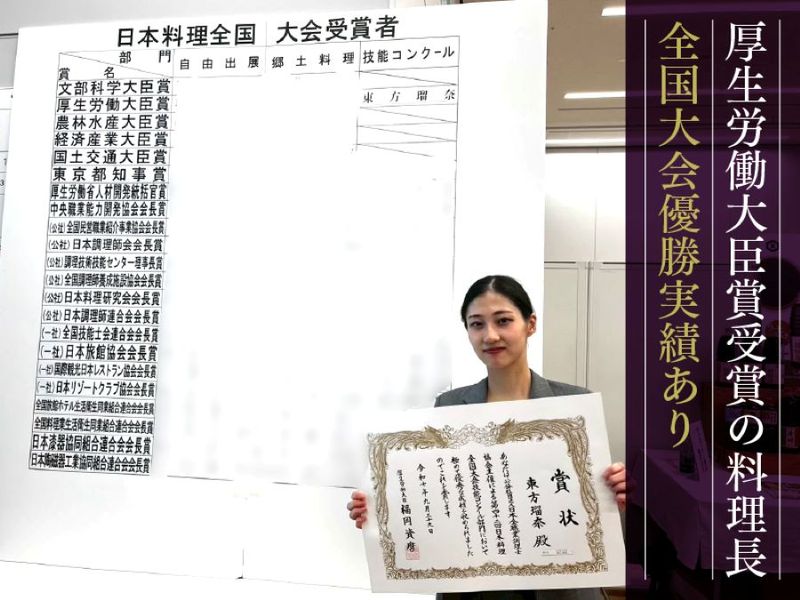 日本料理全国 大会受賞者
部門
賞名
自由出展
郷土料理
技能コンクール
文部科学大臣賞
厚生労働大臣賞
東方瑠奈
農林水産大臣賞
経済産業大臣賞
国土交通大臣賞
東京都知事賞
厚生労働省人材開発統括官賞
中央職業能力開発協会会長賞
(公社)全国民営職業紹介事業協会会長賞
(公社)日本調理師会会長賞
(公社)調理技術技能センター理事長賞
(公社)全国調理師養成施設協会会長賞
(公社)日本料理研究会会長賞
(公社)日本調理師連合会会長賞
(一社)全国技能士会連合会会長賞
(一社)日本旅館協会会長賞
(一社)国際観光日本レストラン協会会長賞
(一社)日本リゾートクラブ協会会長賞
全国旅館ホテル生活衛生同業組合連合会会長賞
全国料理業生活衛生同業組合連合会会長賞
日本漆器協同組合連合会会長賞
日本陶磁器工業協同組合連合会会長賞
賞状
東方瑠奈 殿
全国大会技能コンクール部門において
極めて優秀な成績を収められました
のでこれを賞します
令和七年九月二十九日
福岡資麿
厚生労働大臣賞受賞の料理長
全国大会優勝実績あり